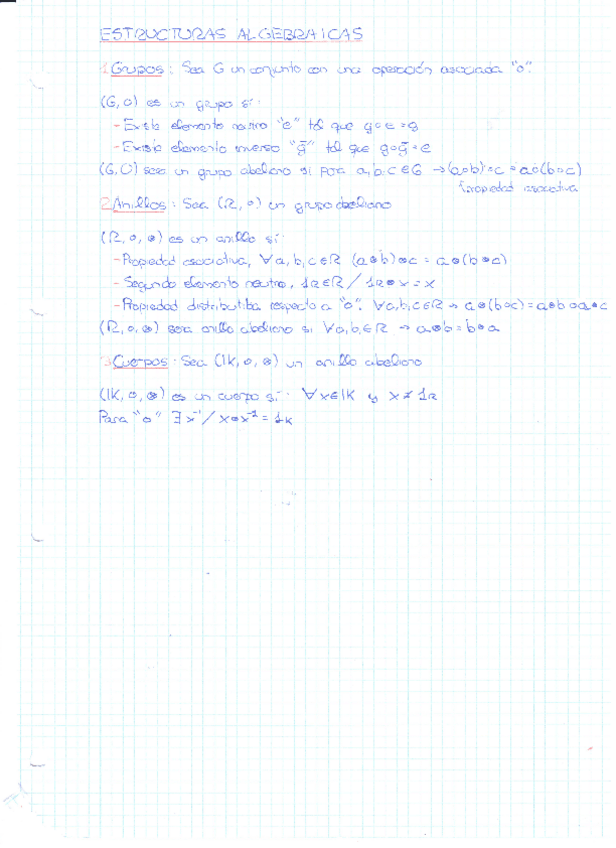 ESTRUCTURAS ALGEBRAICAS
1 Grupos: Sea G un conjunto con una operación asociada "o".
(G,o) es un grupo si:
- Existe elemento neutro "e" tal que g∘e=g
- Existe elemento inverso "g̅" tal que g∘g̅=e
(G,O) sera un grupo abeliano si para a,b,c∈G → (a∘b)∘c = a∘(b∘c)
Propiedad asociativa
2 Anillos: Sea (R,∘) un grupo abeliano
(R,∘,⊗) es un anillo si:
- Propiedad asociativa, ∀a,b,c∈R (a⊗b)⊗c = a⊗(b⊗c)
- Segundo elemento neutro, 1R∈R / 1R⊗x=x
- Propiedad distributiba respecto a "o". ∀a,b,c∈R → a⊗(b∘c)=a⊗b∘a⊗c
(R,∘,⊗) sera anillo abeliano si ∀a,b,∈R → a⊗b=b⊗a
3 Cuerpos: Sea (IK,∘,⊗) un anillo abeliano
(IK,∘,⊗) es un cuerpo si: ∀x∈IK y x≠1R
Para "o" ∃x⁻¹/ x⊗x⁻¹=1K